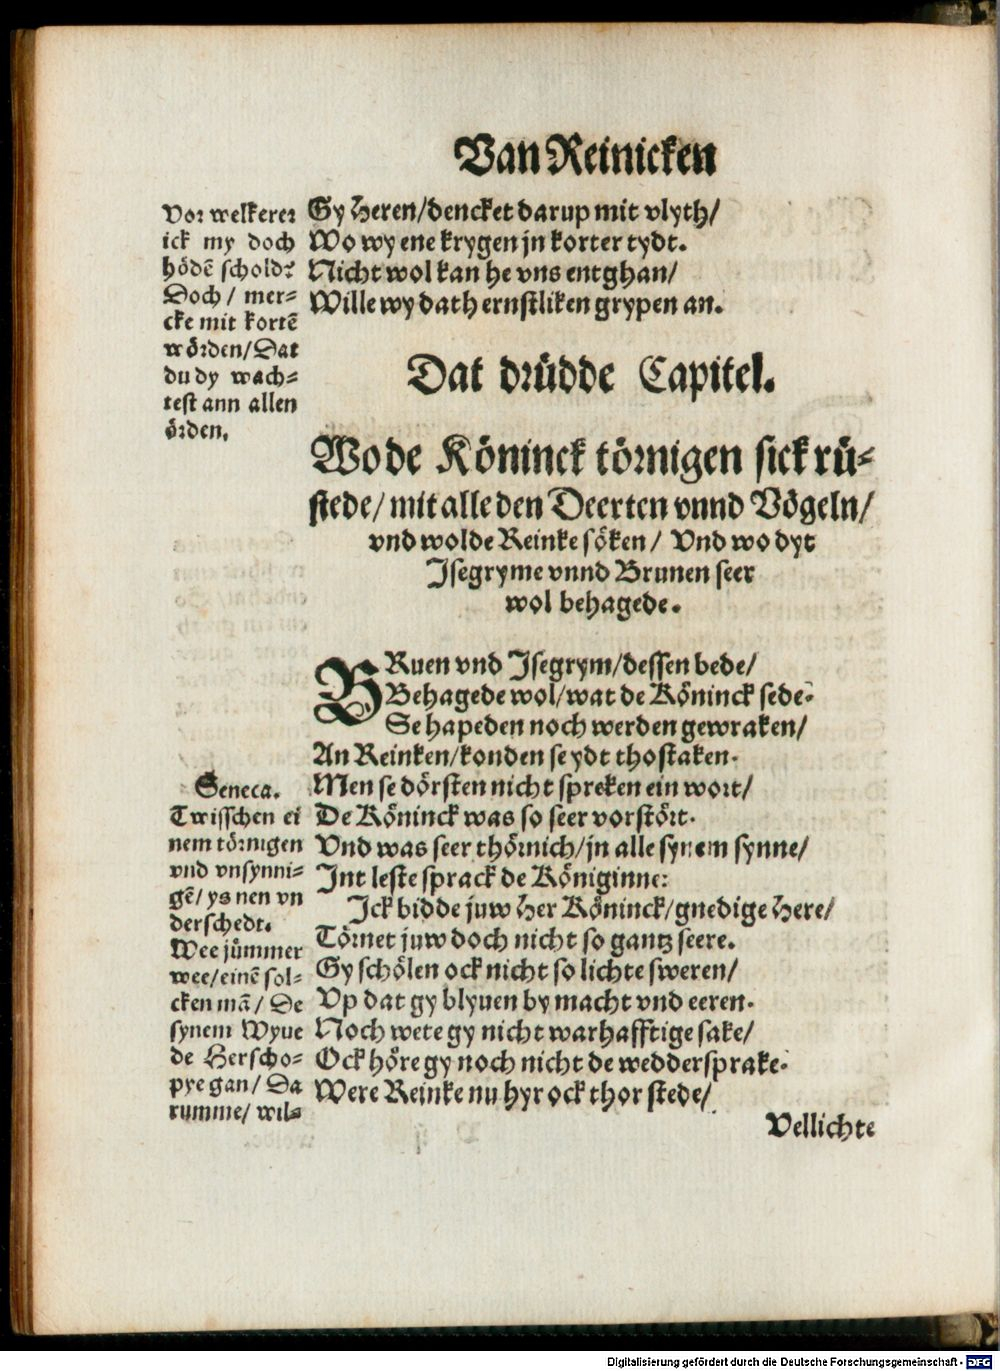 Van Reinicken
Gy Heren/dencket darup mit vlyth/
Wo wy ene krygen jn korter tydt.
Nicht wol kan he vns entghan/
Wille wy dath ernstliken grypen an.
Vor welkerer
ick my doch
hödē schold?
Doch / mer⸗
cke mit kortē
wörden/Dat
du dy wach⸗
test ann allen
örden.
Dat drüdde Capitel.
Wo de Köninck törnigen sick rü⸗
stede/ mit alle den Deerten vnnd Vögeln/
vnd wolde Reinke söken / Vnd wo dyt
Isegryme vnnd Brunen seer
wol behagede.
BRuen vnd Isegrym/dessen bede/
Behagede wol/wat de Köninck sede.
Se hapeden noch werden gewraken/
An Reinken/konden se ydt thostaken.
Men se dörsten nicht spreken ein wort/
De Köninck was so seer vorstört.
Vnd was seer thörnich/jn alle synem synne/
Int leste sprack de Königinne:
Ick bidde juw Her Köninck/gnedige Here/
Törnet juw doch nicht so gantz seere.
Gy schölen ock nicht so lichte sweren/
Vp dat gy blyuen by macht vnd eeren.
Noch wete gy nicht warhafftige sake/
Ock höre gy noch nicht de weddersprake.
Were Reinke nu hyr ock thor stede/
Seneca.
Twisschen ei
nem törnigen
vnd vnsynni⸗
gē/ ys nen vn
derschedt.
Wee jümmer
wee/einē sol⸗
cken mā/ De
synem Wyue
de Herscho⸗
pye gan/ Da
rumme/ wil⸗
Vellichte
Digitalisierung gefördert durch die Deutsche Forschungsgemeinschaft - DFG